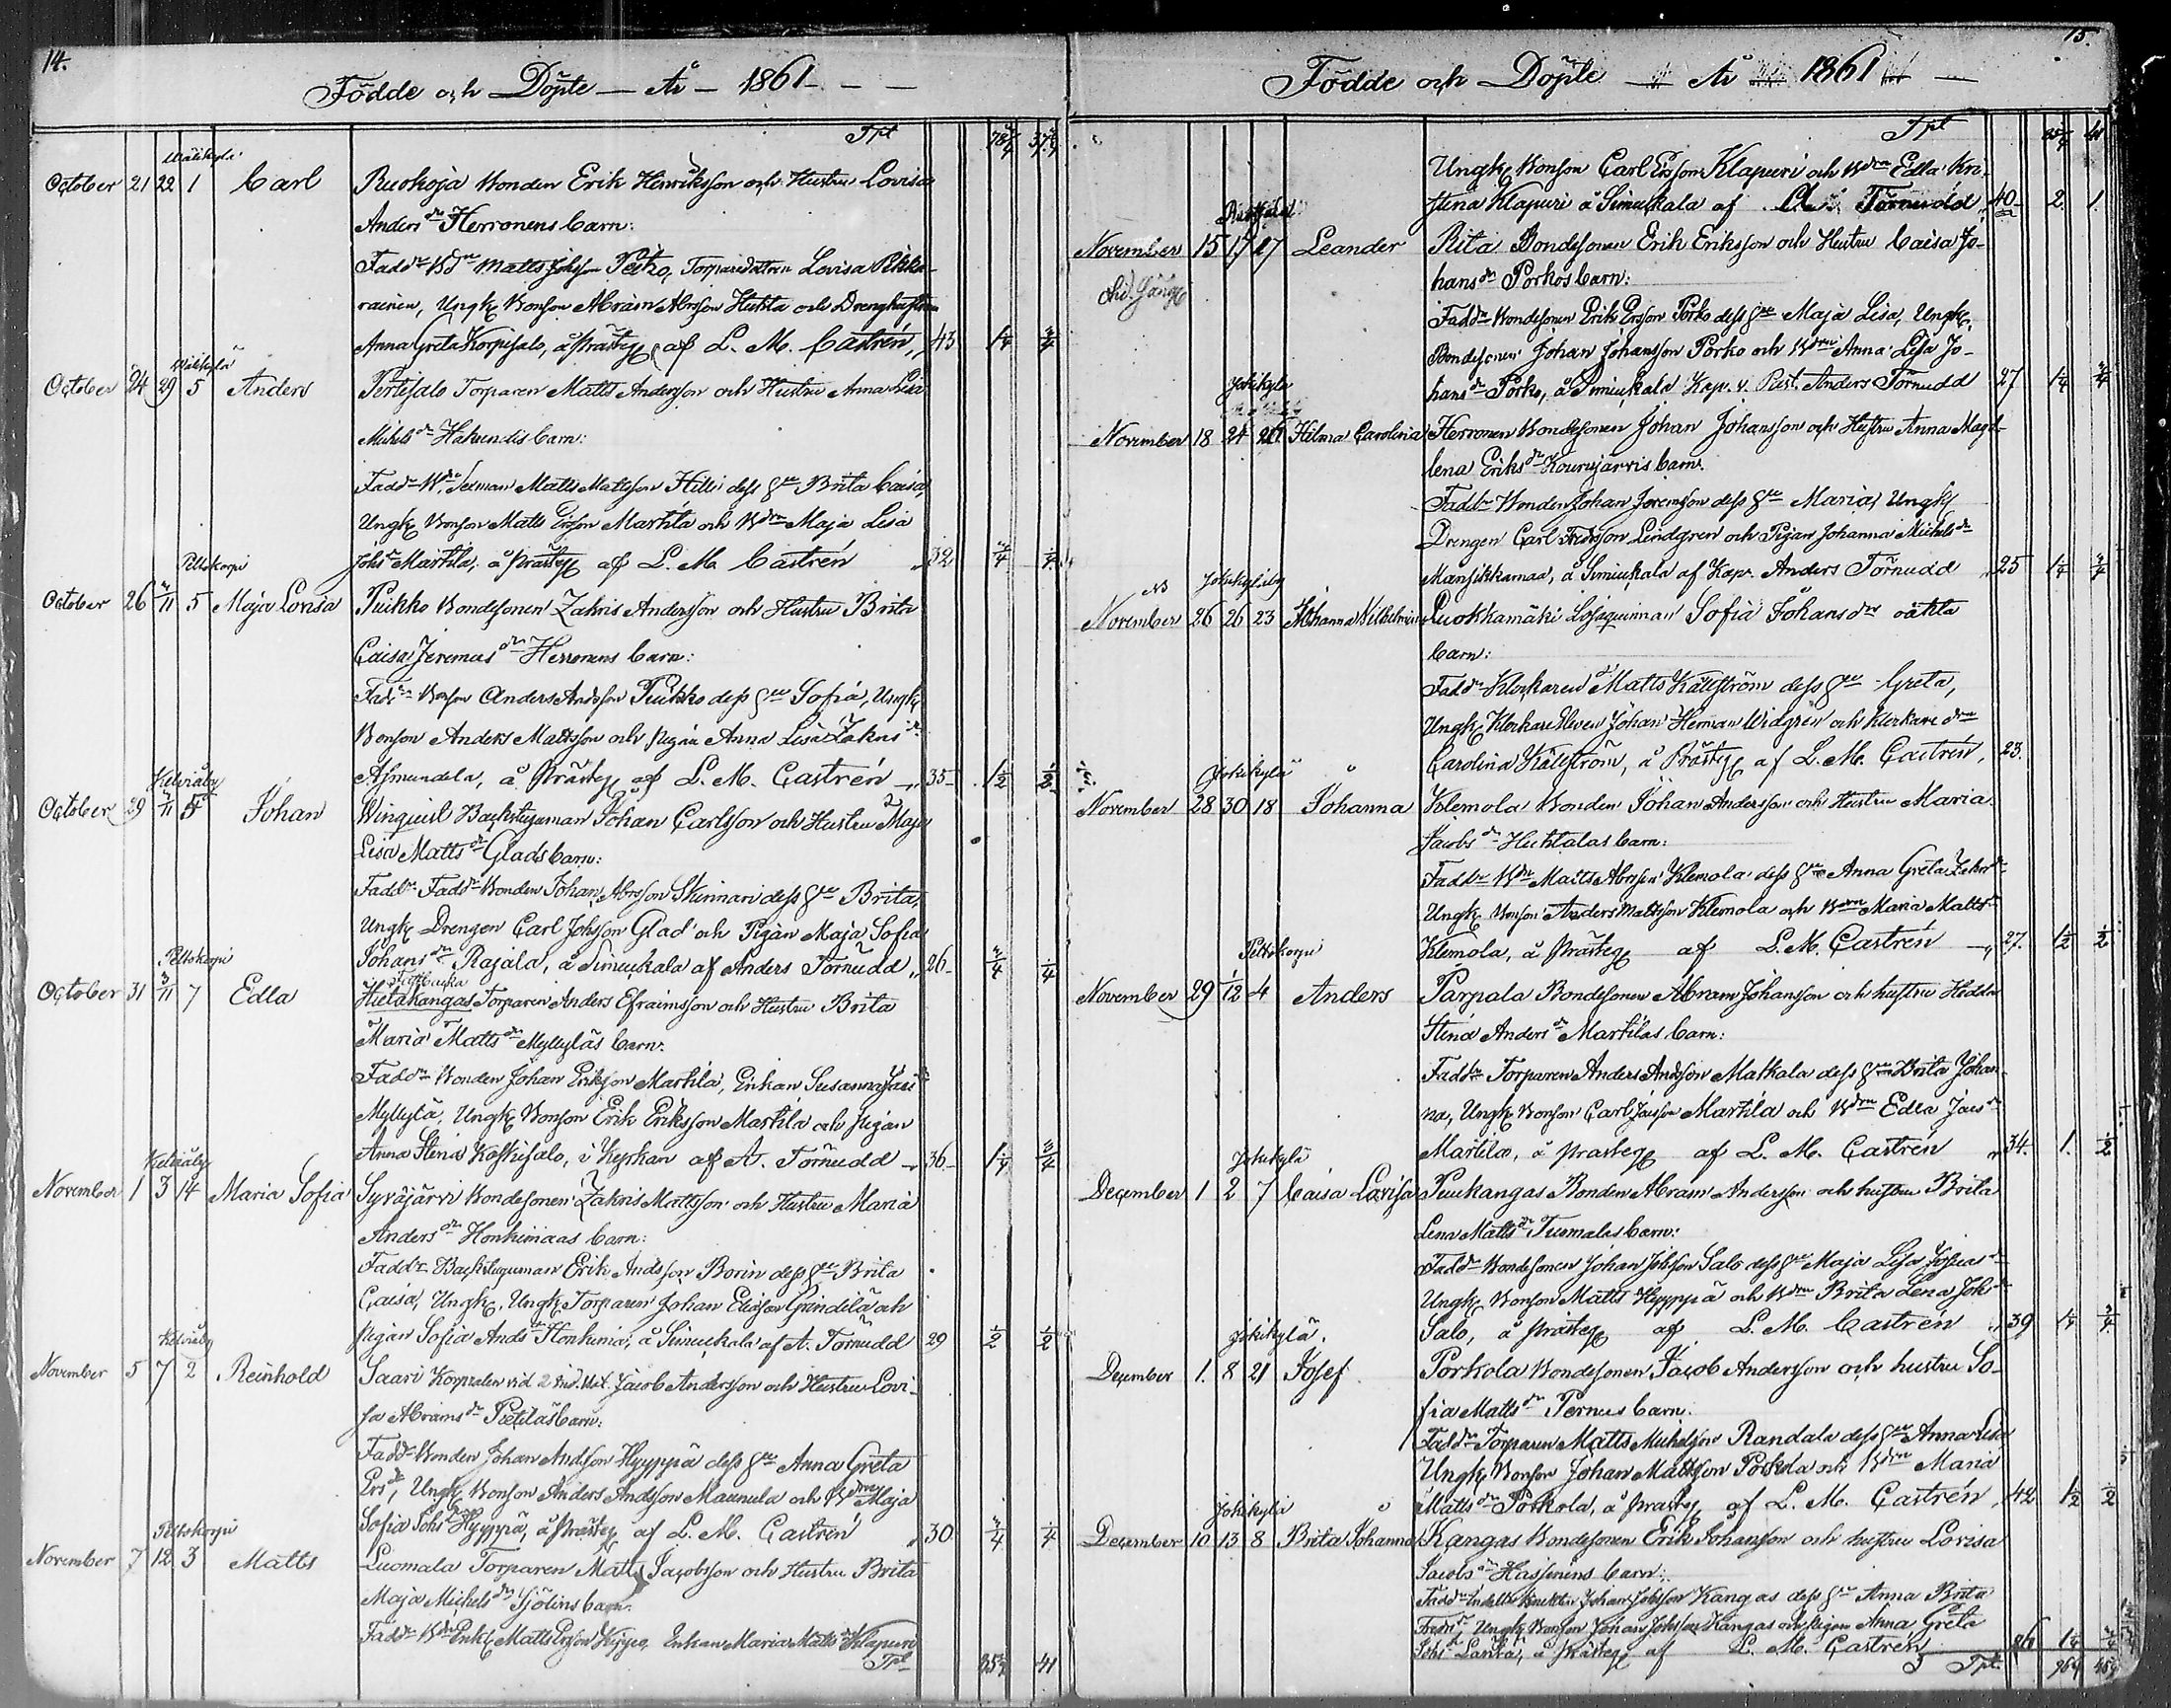 14.
Födde och Döpte — År — 1861 — —
Tpt 78 3/4 37 3/4
Wälikylä
October 21 22 1 Carl Ruokoja Bonden Erik Henriksson och Hustru Lovisa
Anders dr Herronens barn:
Fadd: Matts Johsson Peitzo, Torparedottren Lovisa
rainen, Ungk. Bonson Abram Abrsson Huhta och
Anna Greta Korpisalo, å Prästeg af L. M. Castrén, 43 1 1/4 3/4
Wälikylä
October 24 29 5 Anders Pertisalo Torparen Matts Andersson och Hustru Anna Lisa
Michels dr Hakundis barn:
Fadd: Matts Mattsson Hilli dess Hru Brita Caisa,
Ungk Bonson Matts Ersson Martila och Bdrn Maja Lisa
Johs dr Martila, å Prästeg af L. M. Castrén 32 3/4 1/4
Peltokorpi
October 26 2/11 5 Maja Lovisa Puikko Bondesonen Zakris Andersson och Hustru Brita
Caisa Jeremias dr Herronens barn:
Fadd: Bonson Anders Andsson Puikko dess Hru Sofia, Ungk
Bonson Anders Mattsson och pigan Anna Lisa Zakris dr
Asmundela, å Prästeg af L. M. Castrén 35 1 1/2 1/2
Kelviåby
October 29 11 5 Johan Winquist Backstuguman Johan Carlsson och Hustru Maja
Lisa Matts dr Glads barn:
Fadd: Fadd: Bonden Johan Abrsson Skinnari dess Hru Brita,
Ungk Drengen Carl Johsson Glad och Pigan Maja Sofia
Johans dr Rajala, å Simukala af Anders Törnudd, 26 3/4 1/4
Peltokorpi
October 31 3/11 7 Edla Hietakangas Torparen Anders Efraimsson och Hustru Brita
Maria Matts dr Myllyläs barn:
Fadd: Bonden Johan Eriksson Martila, Enkan Susanna
Myllylä, Ungk Bonson Erik Eriksson Martila och pigan
Anna Stina Koskisalo, i Kyrkan af A. Törnudd 36 1 1/4 3/4
Kelviåby
November 1 3 14 Maria Sofia Syväjärvi Bondesonen Zakris Mattsson och Hustru Maria
Anders dr Honkimaas barn:
Fadd: Backstuguman Erik Andsson Borin dess Hru Brita
Caisa, Ungk, Ungk Torparen Johan Eliasson Grindilä och
pigan Sofia Ands dr Honkima, å Simukala af A. Törnudd 29 1/2 1/2
Kelviåby
November 5 7 2 Reinhold Saari Korpralen vid 2 Ind. Bat. Jacob Andersson och Hustru Lovi-
sa Abrams dr Pietiläs barn:
Fadd: Bonden Johan Andsson Hyyppä dess Hru Anna Greta
Ers dr, Ungk, Bonson Anders Andsson Maunula och Bdrn Maja
Sofia Johs dr Hyyppä, å Prästeg af L. M. Castrén 30 3/4 1/4
Peltokorpi
November 7 12 3 Matts Luomala Torparen Matts Jacobsson och Hustru Brita
Maja Michels dr Sjölins barn:
Fadd: Matts Ersson Enkan Maria Matts dr Klapuri
Tpt 41
15.
Födde och Döpte — År 1861 —
Tpt 41
Ungk, Bonson Carl Ersson Klapuri och Bdrn Edla Kri-
stina Klapuri å Simukala af A. Törnudd 40 2. 1.
November 15 17 27 Leander Rita Bondesonen Erik Eriksson och Hustru Caisa Jo-
hans dr Porkos barn:
Fadd: Bondesonen Erik Ersson Porko dess Hru Maja Lisa, Ungk,
Bondesonen Johan Johansson Porko och Bdrn Anna Lisa Jo-
hans dr Porko, å Simukala Kap. v. Past. Anders Törnudd 27 1 1/4 3/4
Jokikylä
November 18 24 Hilma Carolina Herronen Bondesonen Johan Johansson och Hustru Anna Magd-
lena Eriks dr Kourujärvis barn.
Fadd: Bonden Johan Jeremsson dess Hru Maria, Ungk,
Drengen Carl Lindgren och Pigan Johanna Michels dr
Mansikkamaa, å Simukala af Kap. Anders Törnudd 25 1 1/4 3/4
Jokikyläby
November 26 26 23 Johanna Wilhelmina Ruokkamäki Lösaquinnan Sofia Johans dr oäkta
barn:
Fadd: Klockaren Matts Källström dess Hru Greta,
Ungk, Klockare Eleven Johan Herman Widgrén och Klockare drn
Carolina Källström, å Prästeg af L. M. Castrén, 23.
Jokikylä
November 28 30 18 Johanna Klemola Bonden Johan Andersson och Hustru Maria
Jacobs dr Huhtalas barn:
Fadd: Matts Abrsson Klemola dess Hru Anna Greta
Ungk, Bonson Anders Mattsson Klemola och Bdrn Maria Matts dr
Klemola, å Prästeg af L. M. Castrén 27. 1 1/2 1/2
Peltokorpi
November 29 1/12 4 Anders Parpala Bondesonen Abram Johansson och hustru Hedda
Stina Anders dr Martilas barn:
Fadd: Torparen Anders Andsson Matkala dess Hru Brita Johan-
na, Ungk, Bonson Carl Martila och Bdrn Edla
Martila, å Prästeg af L. M. Castrén 34. 1. 1/2
Jokikylä
December 1 2 7 Caisa Lovisa Puukangas Bonden Abram Andersson och hustru Brita
Lena Matts dr Tuomalas barn:
Fadd: Bondesonen Johan Johsson Salo dess Hru Maja Lisa
Ungk, Bonson Matts Hyyppä och Bdrn Brita Lena Joh dr
Salo, å Prästeg af L. M. Castrén 39 1 1/4 3/4
Jokikylä.
December 1. 8 21 Josef Porkola Bondesonen Jacob Andersson och hustru So-
fia Matts dr Pernus barn.
Fadd: Torparen Matts Michelsson Randala dess Hru Anna Lisa
Ungk, Bonson Johan Mattsson Porkola och Bdrn Maria
Matts dr Porkola, å Prästeg af L. M. Castrén, 42 1 1/2 1/2
Jokikylä
December 10 13 8 Brita Johanna Kangas Bondesonen Erik Johansson och hustru Lovisa
Jacobs dr Hassinens barn:
Fadd: Johan Johsson Kangas dess Hru Anna Brita
Ungk, Bonson Johan Johsson Kangas och pigan Anna Greta
Johs dr å Prästeg af L. M. Castrén 26
Tpt